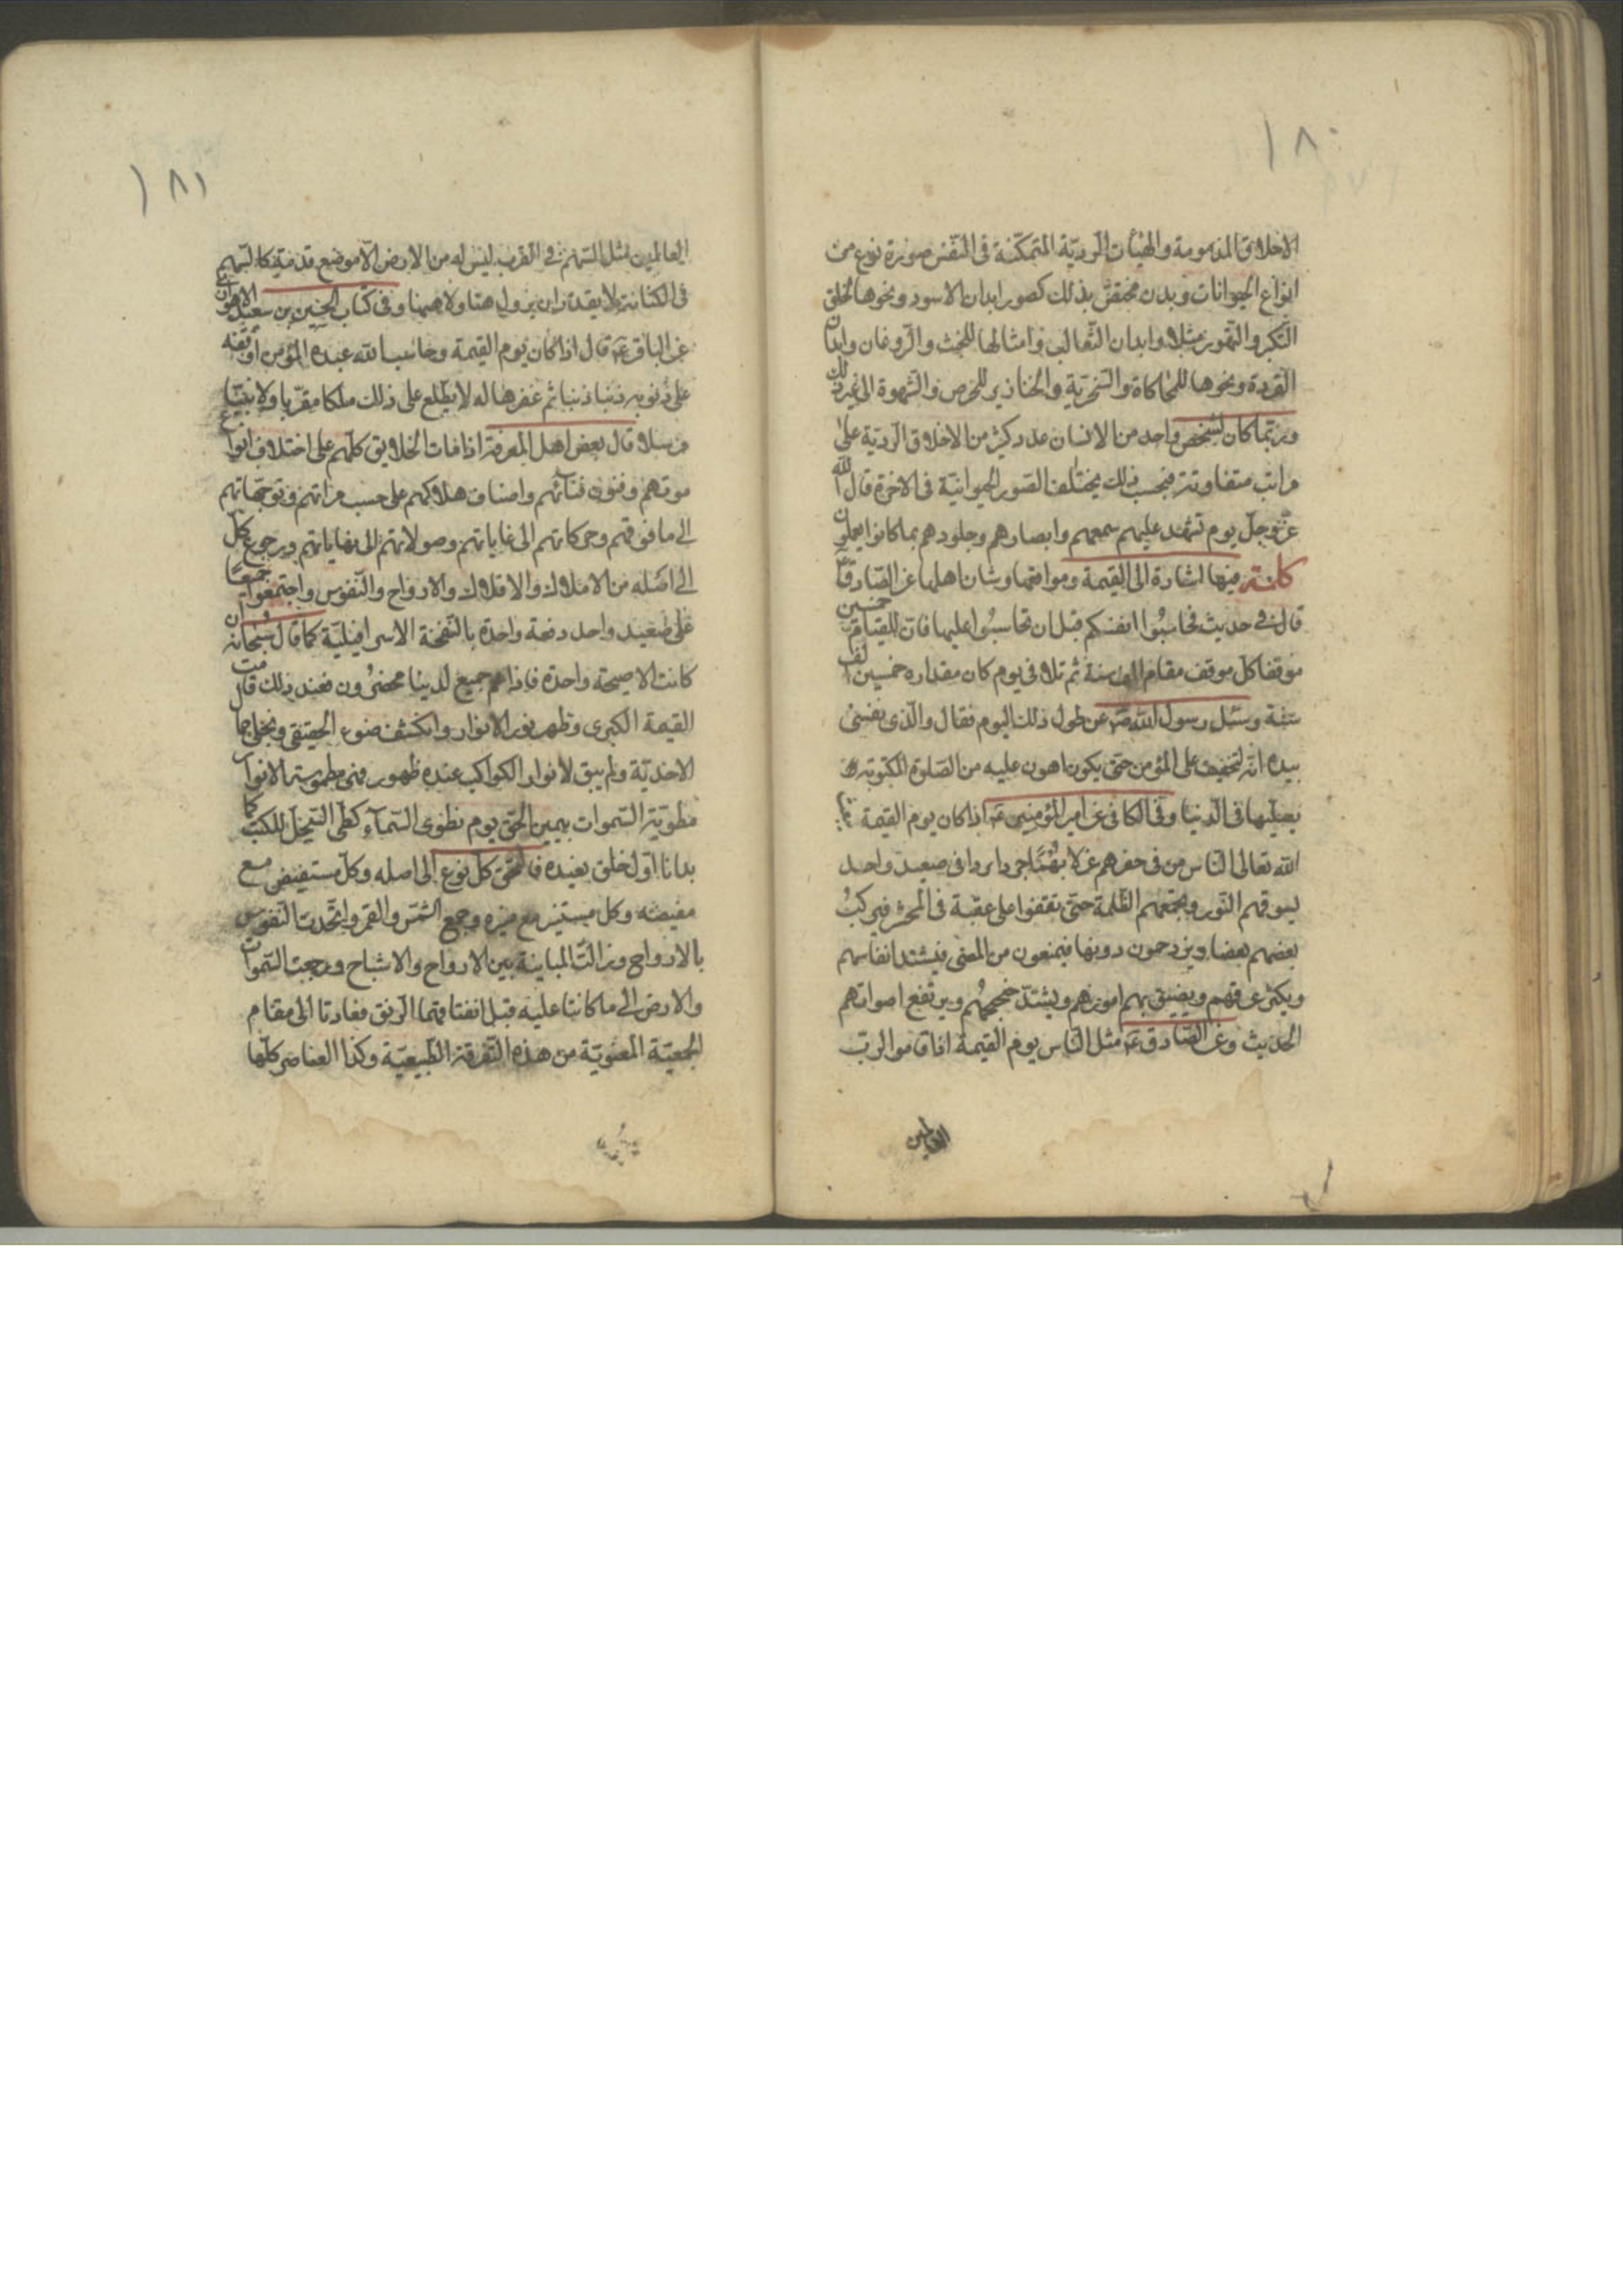 ١٨٠
الاخلاق المذمومة والهيئات الرديّة المتمكّنة فى النّفس صورة نوع من
انواع الحيوانات وبدن مختصّ بذلك كصور ابدان الاسود ونحوها لخلق
التّكبر والتّهور مثلا وابدان الثّعالب وامثالها للخبث والرّوغان وابدان
القردة ونحوها للمحاكاة والسّخريّة والخنازير للحرص والشّهوة الى غير ذلك
وربّما كان لشخص واحد من الانسان عدد كثير من الاخلاق الرديّة على
مراتب متفاوتة فبحسب ذلك يختلف الصّور الحيوانيّة فى الاخرة قال الله
عزّ وجلّ يوم تشهد عليهم سمعهم وابصارهم وجلودهم بما كانوا يعملون
كلمة فيها اشارة الى القيمة ومواقفها وشان اهلها عن الصّادق ع
قال فى حديث فحاسبُوا انفسكم قبل ان تحاسبُوا عليها فان للقيامة خمسين
موقفا كلّ موقف مقام الف سنة ثم تلا فى يوم كان مقداره خمسين الف
سنة وسئل رسول الله ص عن طول ذلك اليوم فقال والّذى نفسى
بيده انّه لتخفيف على المؤمن حتى يكون اهون عليه من الصّلوة المكتوبة
يصلّيها فى الدّنيا وفى الكافى عن امير المؤمنين ع اذا كان يوم القيمة
الله تعالى النّاس من فى حفرهم عزلا بُهْمًا جردا مردا فى صعيد واحد
يسوقهم النّور ويجمعهم الظّلمة حتى يقفوا على عقبة فى المحشر فيركبُ
بعضهم بعضا ويزدحمون دونها فيمنعون من المضى فيشتد انفاسهم
ويكثر عرقهم ويضيق بهم امورهم ويشتدّ ضجيجهُم ويرتفع اصواتهم
الحديث وعن الصّادق ع مثل النّاس يوم القيمة اذا قاموا لربّ
العالمين
١٨١
العالمين مثل السّهم فى القرب ليس له من الارض الّا موضع قدمه كالسّهم
فى الكنانة لا يقدر ان يزول هنا ولا ههنا وفى كتاب الحسين بن سعيد الاهوازى
عن الباقر ع قال اذا كان يوم القيمة وحاسب الله عبده المؤمن اوقفه
على ذنوبه ذنبا ذنبا ثم غفرها له لا يطّلع على ذلك ملكا مقرّبا ولا نبيّا
مرسلا وقال بعض اهل المعرفة اذا مات الخلايق كلّهم على اختلاف انواع
موتهم وفنون فنائهم واصناف هلاكهم على حسب مراتبهم وتوجّهاتهم
الى ما فوقهم وحركاتهم الى غاياتهم وصولاتهم الى نهاياتهم ورجوع كلّ
الى اصله من الاملاك والافلاك والارواح والنّفوس واجتمعوا جميعًا
على صعيد واحد دفعة واحدة بالنّفخة الاسرافيليّة كما قال سُبحانه ان
كانت الا صيحة واحدة فاذا هم جميع لدينا محضرُون فعند ذلك قامت
القيمة الكبرى وظهر نور الانوار وانكشف ضوء الحقيقى وتجلى جمال
الاحديّة ولم يبق لانوار الكواكب عنده ظهور فهى مطموسة الانوار
مطويّة السّموات بيمين الحقّ يوم نطوى السّمآء كطى السّجل للكتب كما
بدانا اوّل خلق نعيده فالتقى كل نوع الى اصله وكلّ مستفيض مع
مفيضه وكل مستنير مع منيره وجمع الشّمس والقمر واتّحدت النّفوس
بالارواح وزالت المباينة بين الارواح والاشباح ورجعت السّموات
والارض الى ما كانتا عليه قبل انفتاقهما الرّتق فعادتا الى مقام
الجمعيّة المعنويّة من هذه التّفرقة الطّبيعيّة وكذا العناصر كلّها